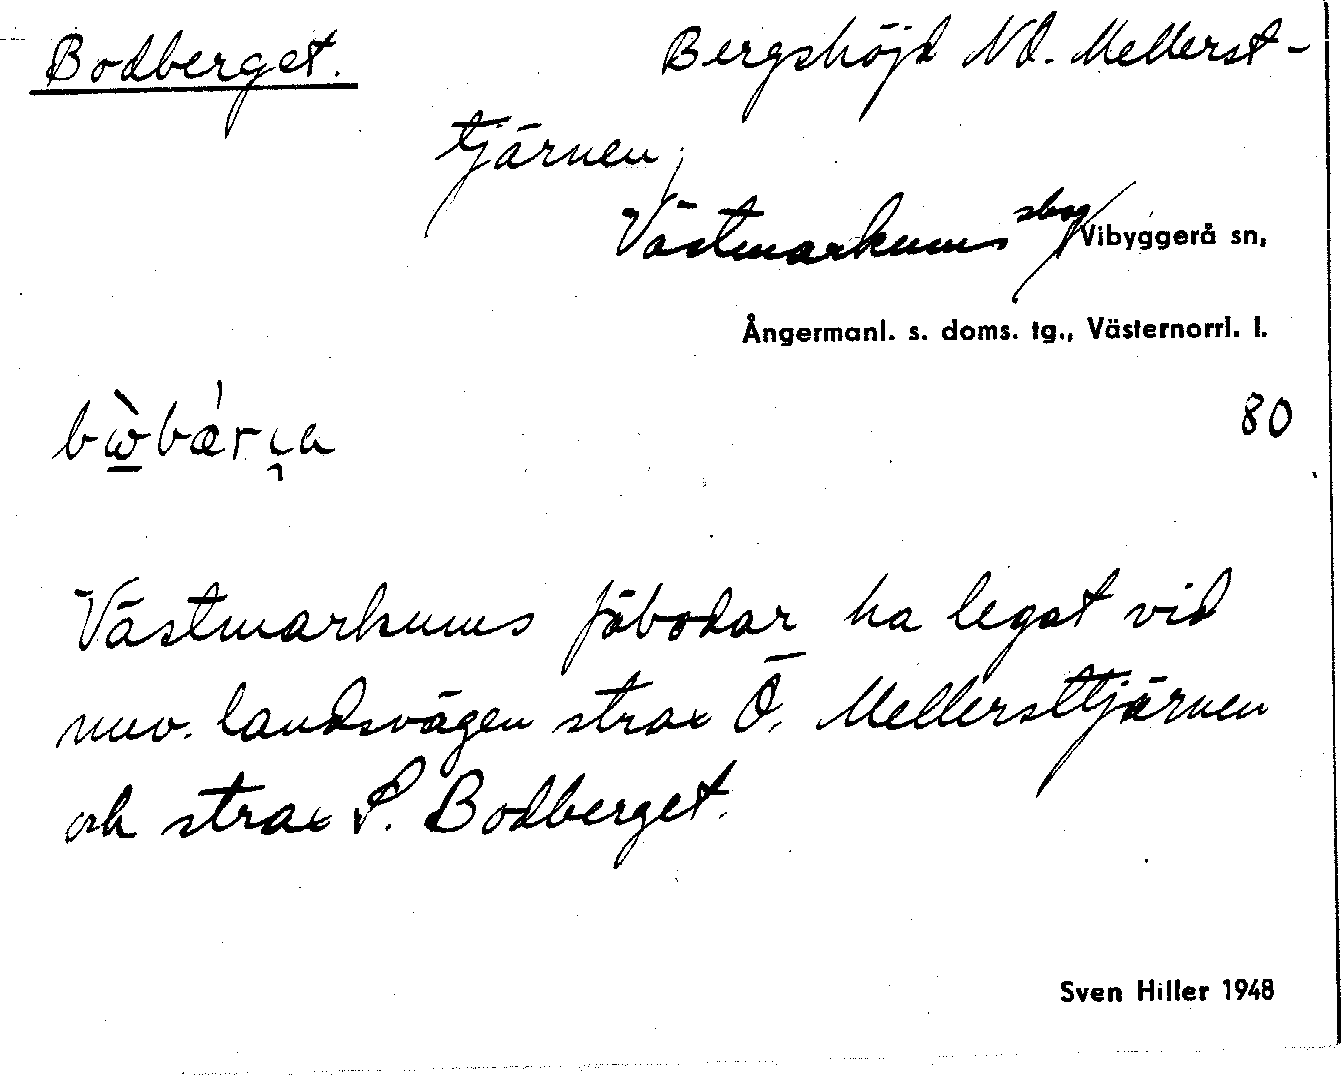 Bodberget. Bergshöjd NO. Mellerst-
tjärnen,
Västmarkums sbg Vibyggerå sn,
Ångermanl. s. doms. tg., Västernorrl. l.
80
Västmarkums fäbodar ha legat vid
nuv. landsvägen strax Ö. Mellersttjärnen
och strax S. Bodberget.
Sven Hiller 1948